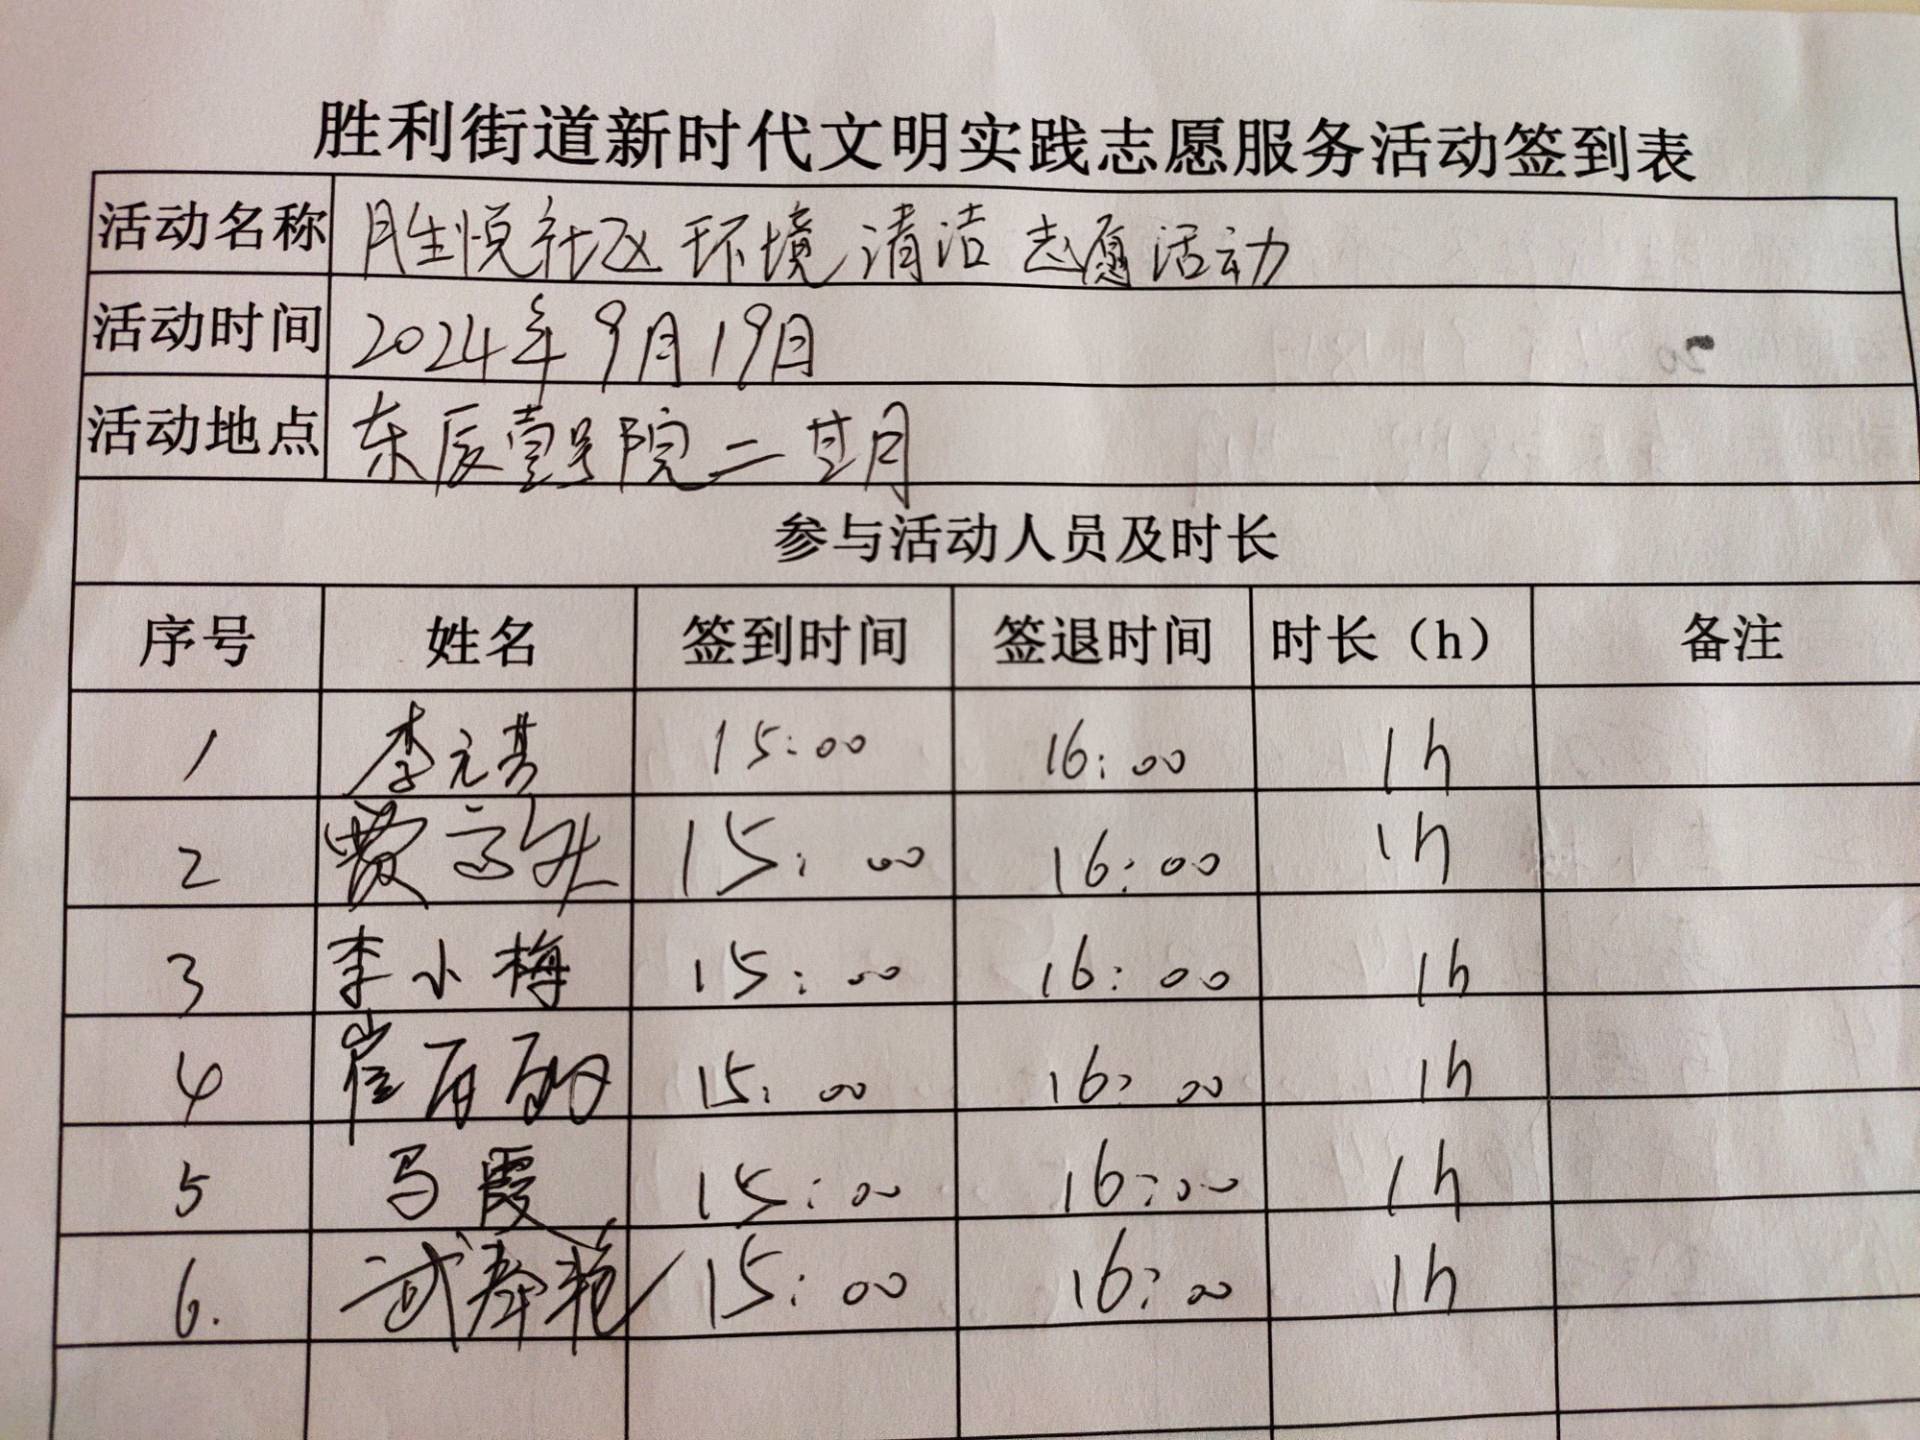 胜利街道新时代文明实践志愿服务活动签到表
活动名称 胜悦社区环境清洁志愿活动
活动时间 2024年9月19日
活动地点 东辰壹号院二期
参与活动人员及时长
序号 姓名 签到时间 签退时间 时长（h） 备注
1 李元 15:00 16:00 1h
2 贾 15:00 16:00 1h
3 李小梅 15:00 16:00 1h
4 崔 15:00 16:00 1h
5 马霞 15:00 16:00 1h
6. 武春艳 15:00 16:00 1h